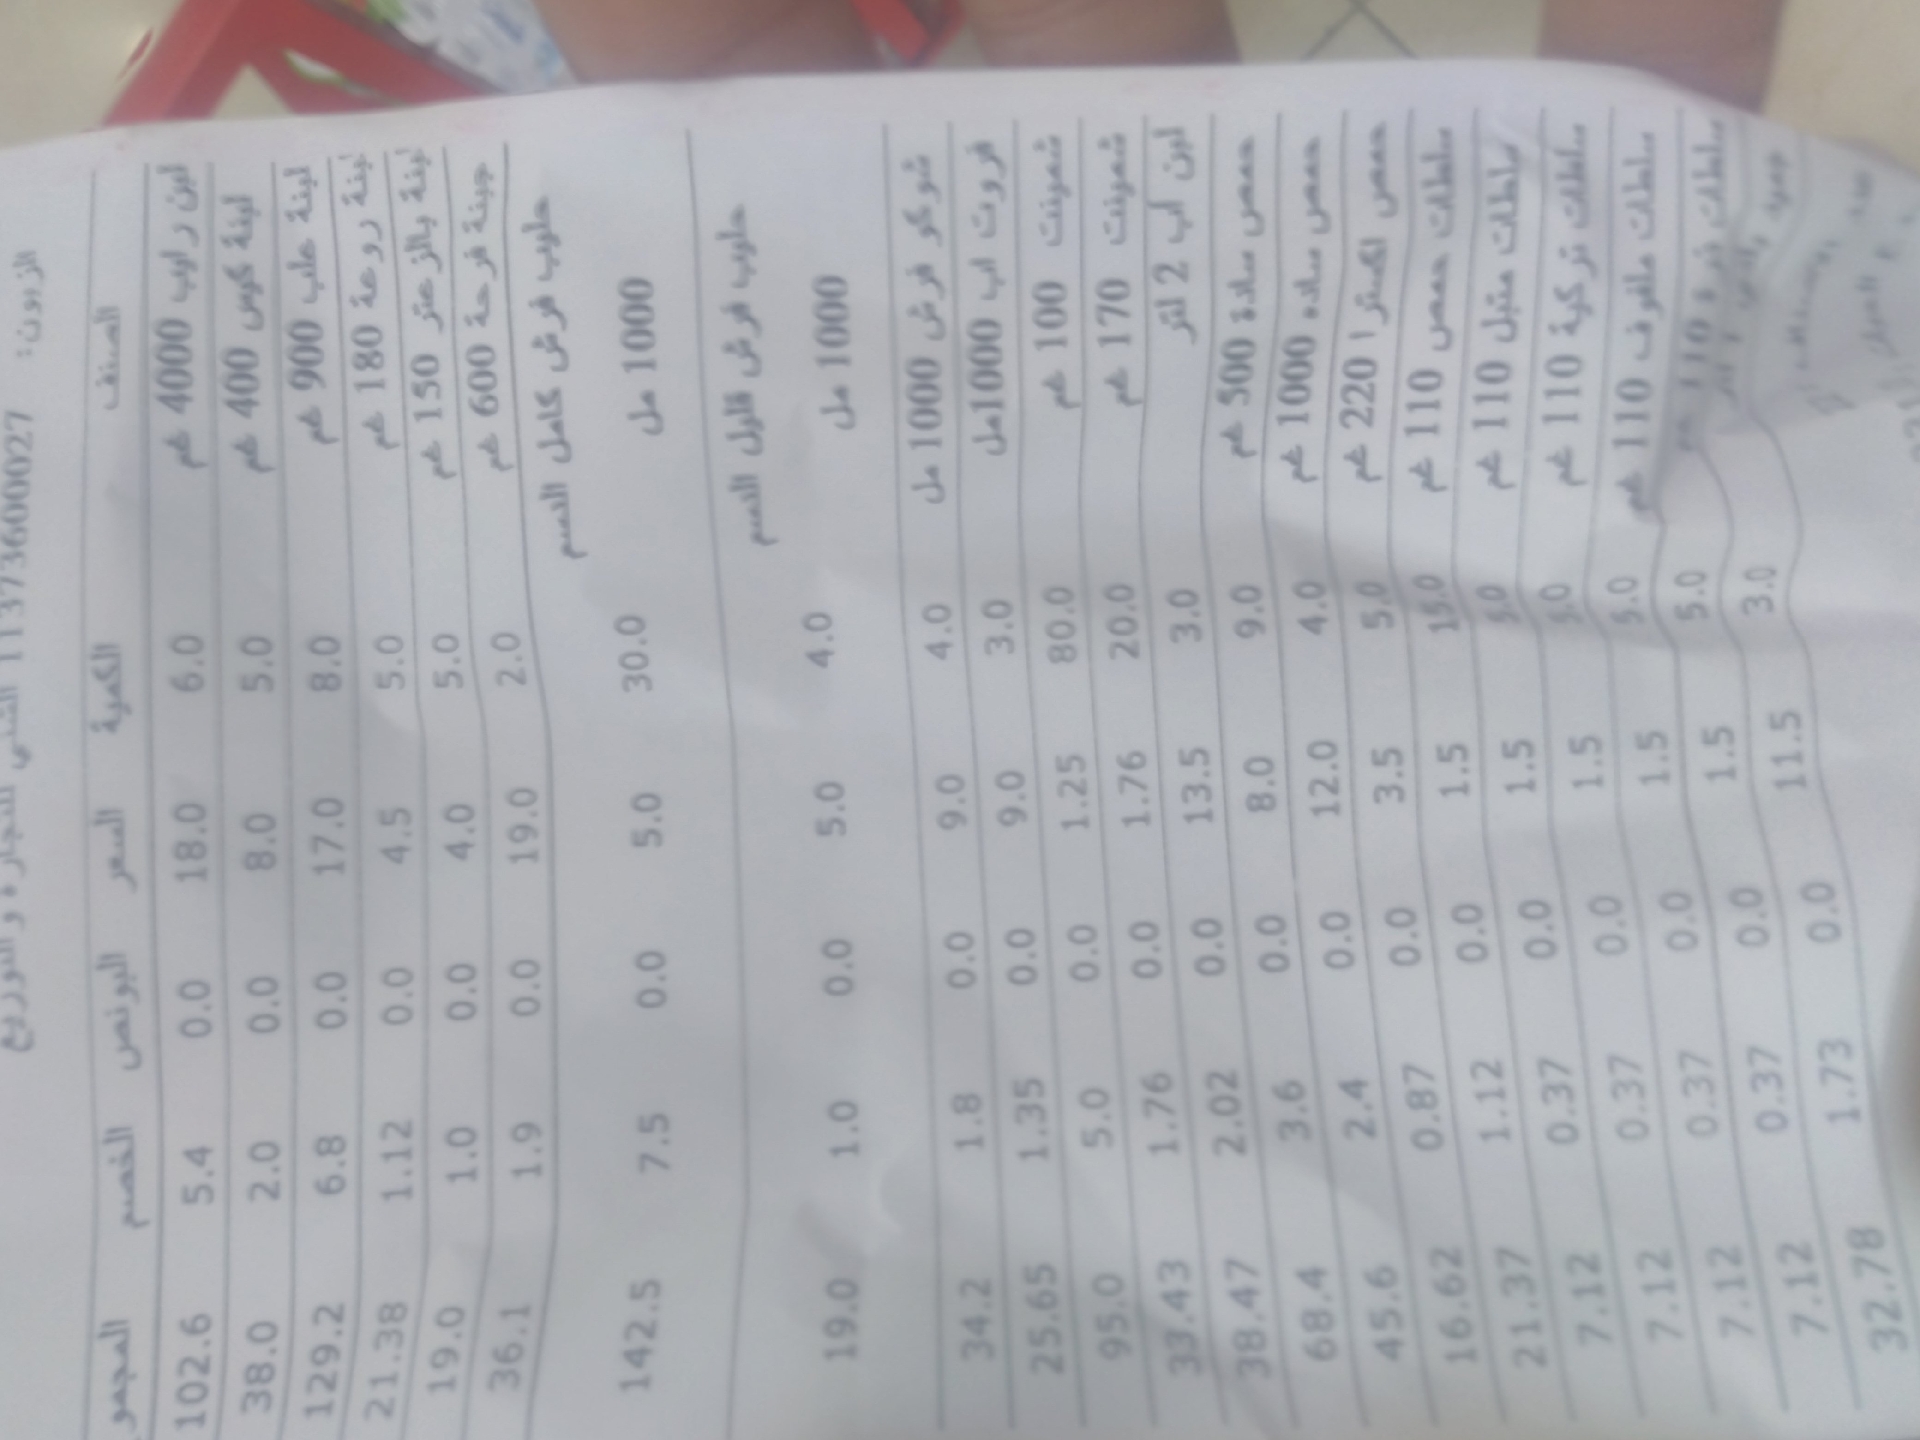 الزبون: 1137360027 الشني للتجارة و التوزيع
الصنف الكمية السعر البونص الخصم المجمو
لبن رايب 4000 غم 6.0 18.0 0.0 5.4 102.6
لبنة كوس 400 غم 5.0 8.0 0.0 2.0 38.0
لبنة علب 900 غم 8.0 17.0 0.0 6.8 129.2
لبنة روعة 180 غم 5.0 4.5 0.0 1.12 21.38
لبنة بالزعتر 150 غم 5.0 4.0 0.0 1.0 19.0
جبنة فرحة 600 غم 2.0 19.0 0.0 1.9 36.1
حليب فرش كامل الدسم
1000 مل 30.0 5.0 0.0 7.5 142.5
حليب فرش قليل الدسم
1000 مل 4.0 5.0 0.0 1.0 19.0
شوكو فرش 1000 مل 4.0 9.0 0.0 1.8 34.2
فروت اب 1000مل 3.0 9.0 0.0 1.35 25.65
شمينت 100 غم 80.0 1.25 0.0 5.0 95.0
شمينت 170 غم 20.0 1.76 0.0 1.76 33.43
لبن اب 2 لتر 3.0 13.5 0.0 2.02 38.47
حمص سادة 500 غم 9.0 8.0 0.0 3.6 68.4
حمص ساده 1000 غم 4.0 12.0 0.0 2.4 45.6
حمص اكسترا 220 غم 5.0 3.5 0.0 0.87 16.62
سلطات حمص 110 غم 15.0 1.5 0.0 1.12 21.37
سلطات متبل 110 غم 5.0 1.5 0.0 0.37 7.12
سلطات تركية 110 غم 5.0 1.5 0.0 0.37 7.12
سلطات ملفوف 110 غم 5.0 1.5 0.0 0.37 7.12
سلطات ذرة 110 غم 5.0 1.5 0.0 0.37 7.12
3.0 11.5 0.0 1.73 32.78